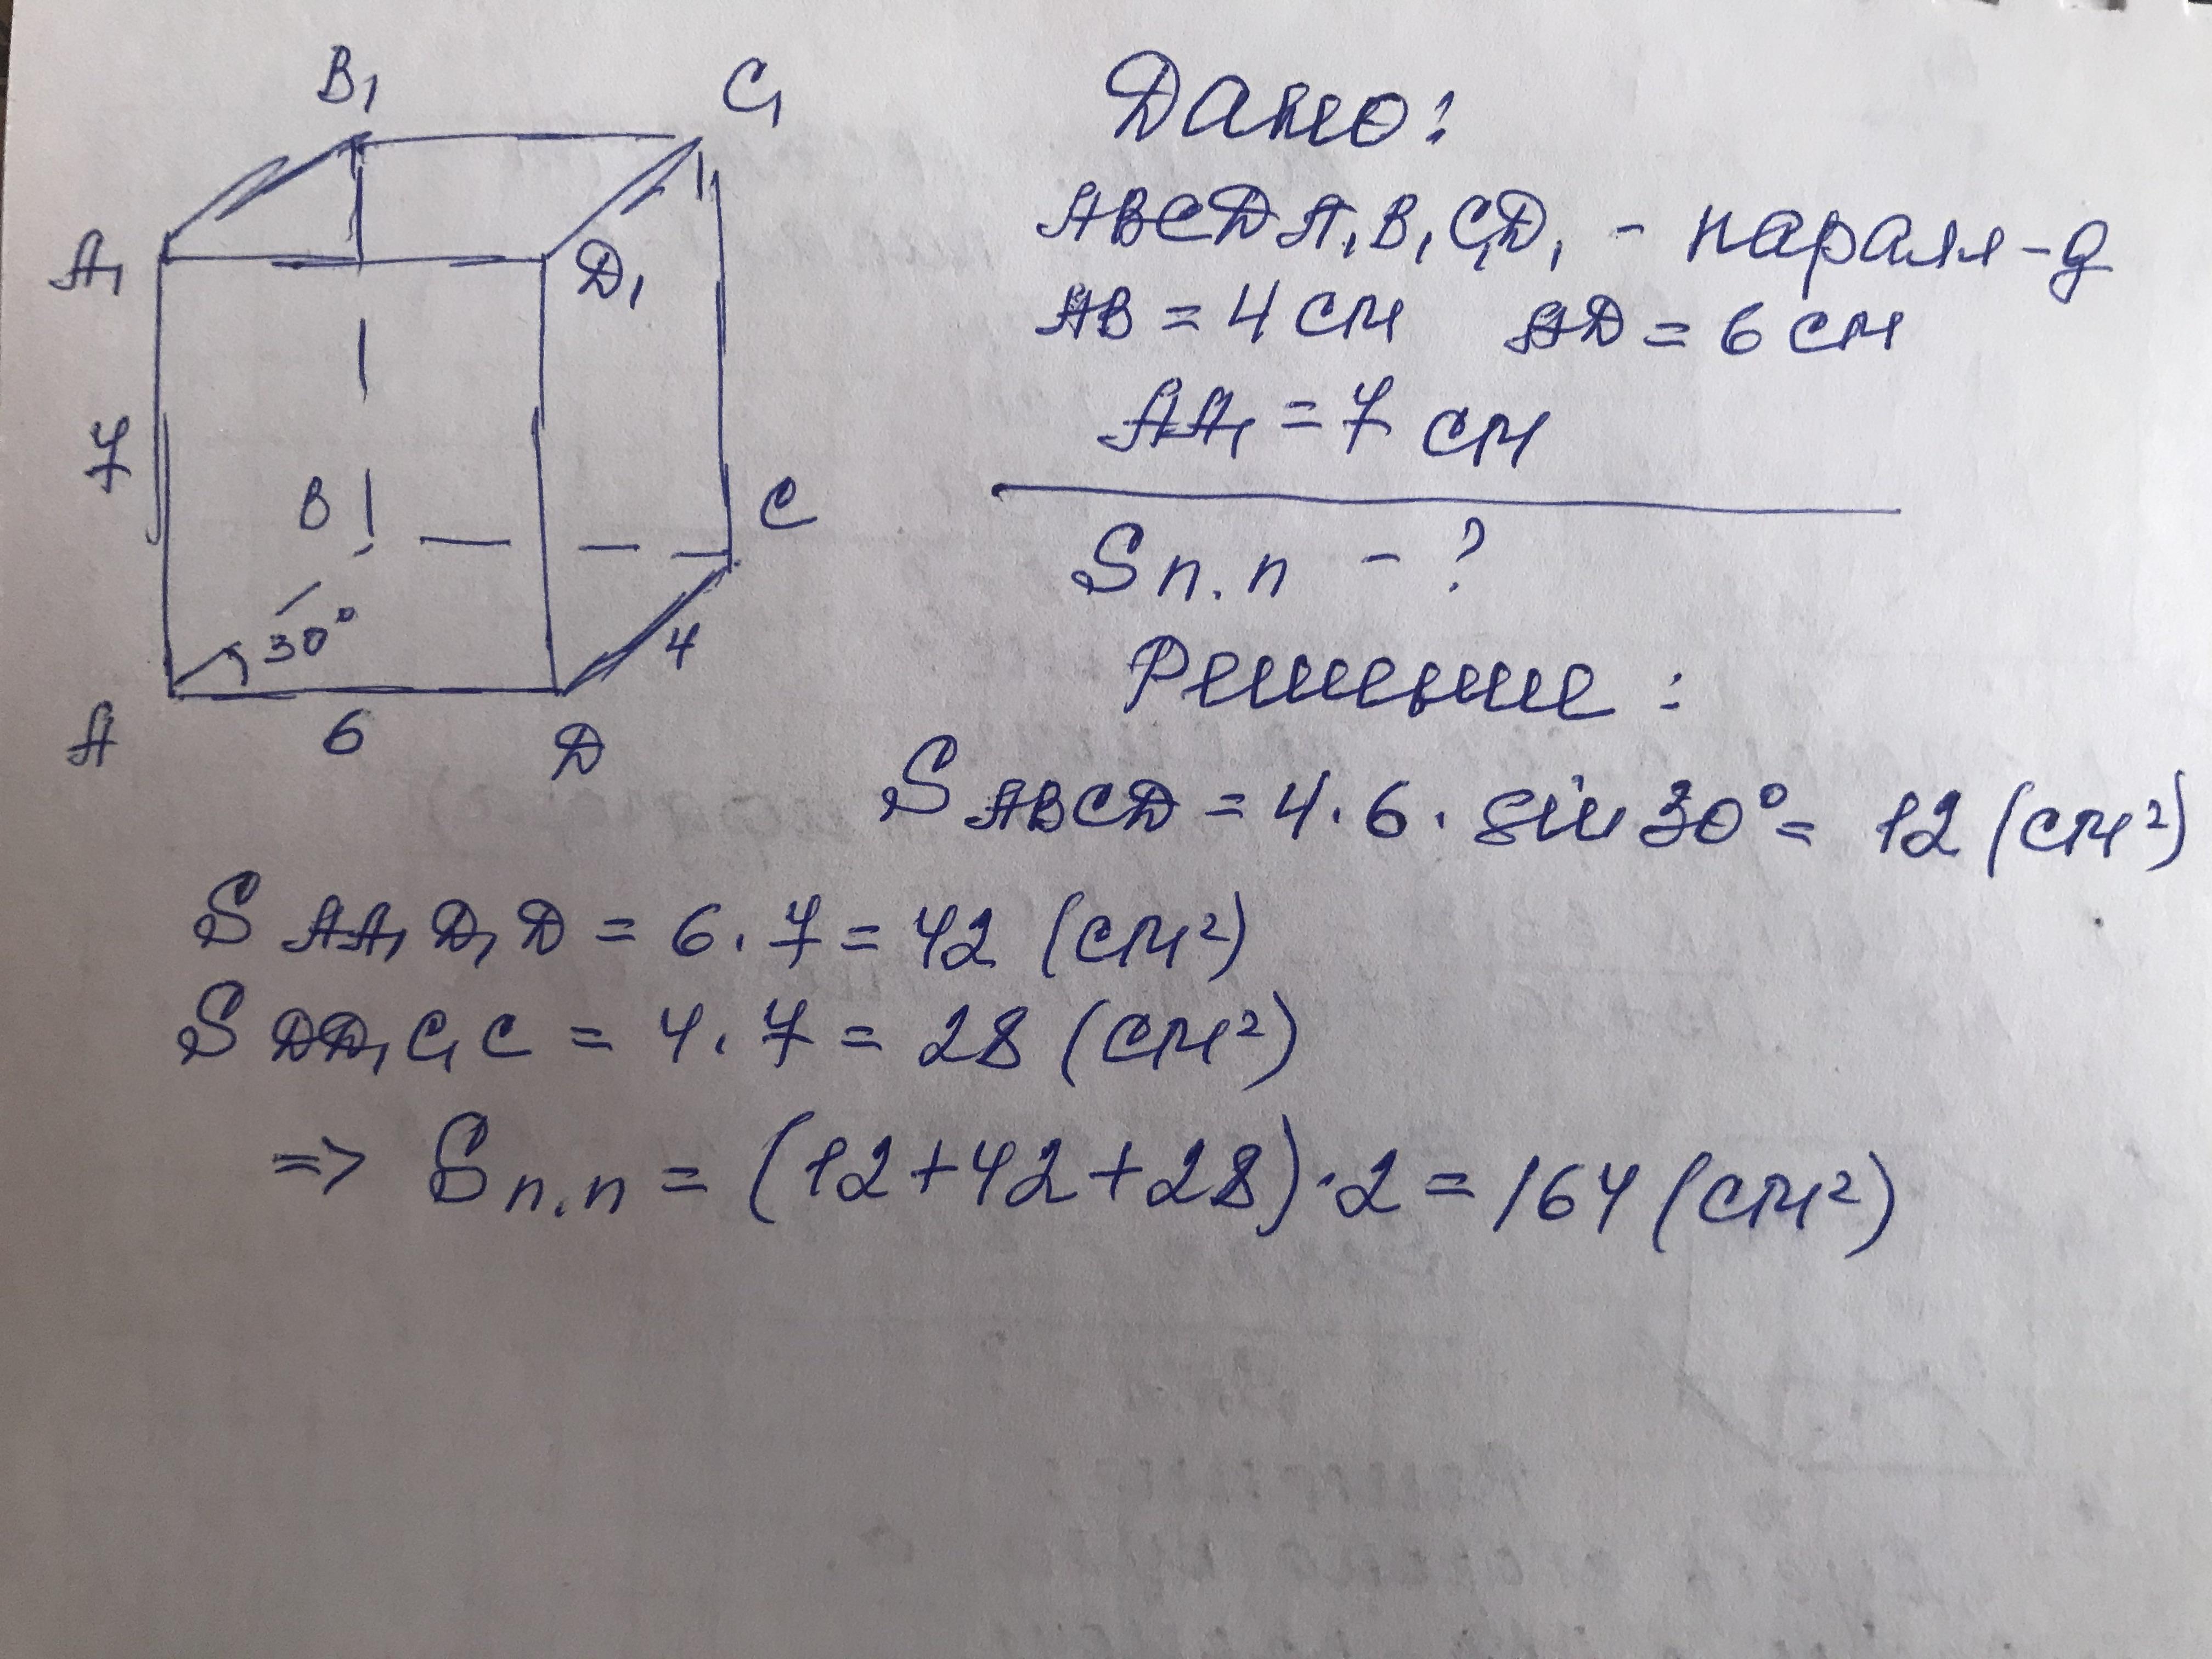 B₁ C₁
A₁ D₁
7
B C
30°
4
A 6 D
Дано:
ABCDA₁B₁C₁D₁ - паралл-д
AB = 4 см AD = 6 см
AA₁ = 7 см
Sп.п - ?
Решение:
S ABCD = 4 · 6 · sin 30° = 12 (см²)
S AA₁D₁D = 6 · 7 = 42 (см²)
S DD₁C₁C = 4 · 7 = 28 (см²)
=> Sп.п = (12+42+28)·2 = 164 (см²)